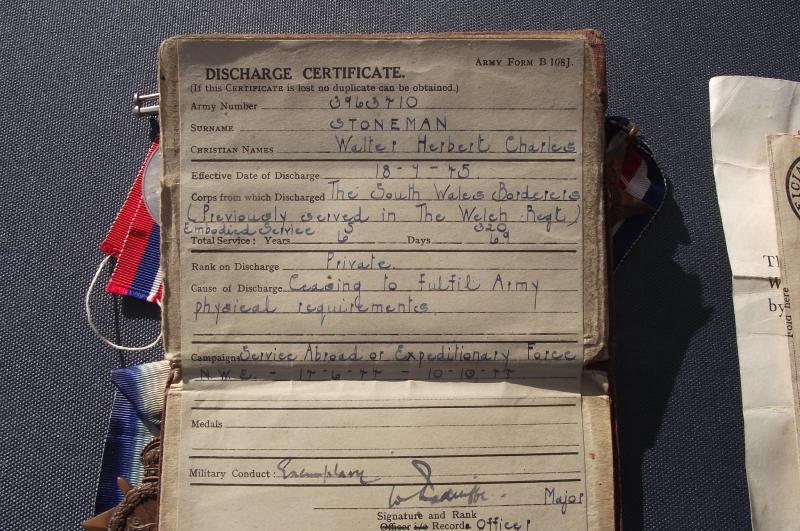 Army Form B 108J.
DISCHARGE CERTIFICATE.
(If this CERTIFICATE is lost no duplicate can be obtained.)
Army Number 3963710
SURNAME STONEMAN
CHRISTIAN NAMES Walter Herbert Charles
Effective Date of Discharge 18-4-45.
Corps from which Discharged The South Wales Borderers
(Previously served in The Welch Regt)
Embodied Service 5 320
Total Service: Years 6 Days 69
Rank on Discharge Private.
Cause of Discharge Ceasing to fulfil Army
physical requirements.
Campaigns Service Abroad or Expeditionary Force
N.W.E. - 17-6-44 - 10-10-44.
Medals
Military Conduct: Exemplary
Major
Signature and Rank
Officer i/c Records Officer
Fold here
by